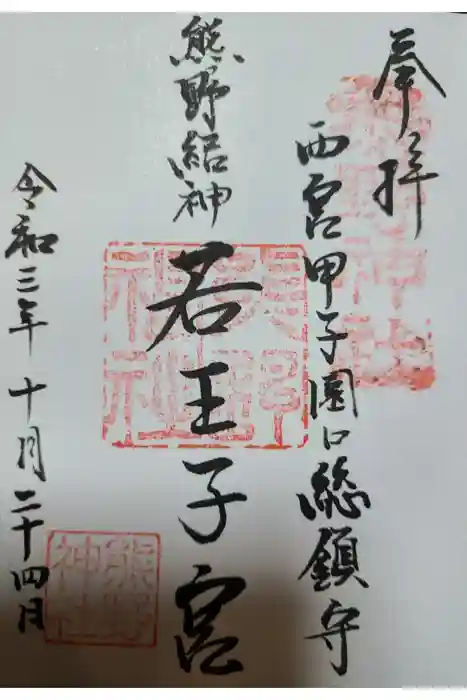 奉拝
西宮甲子園口総鎮守
熊野結神
若王子宮
令和三年十月二十四日
熊野神社